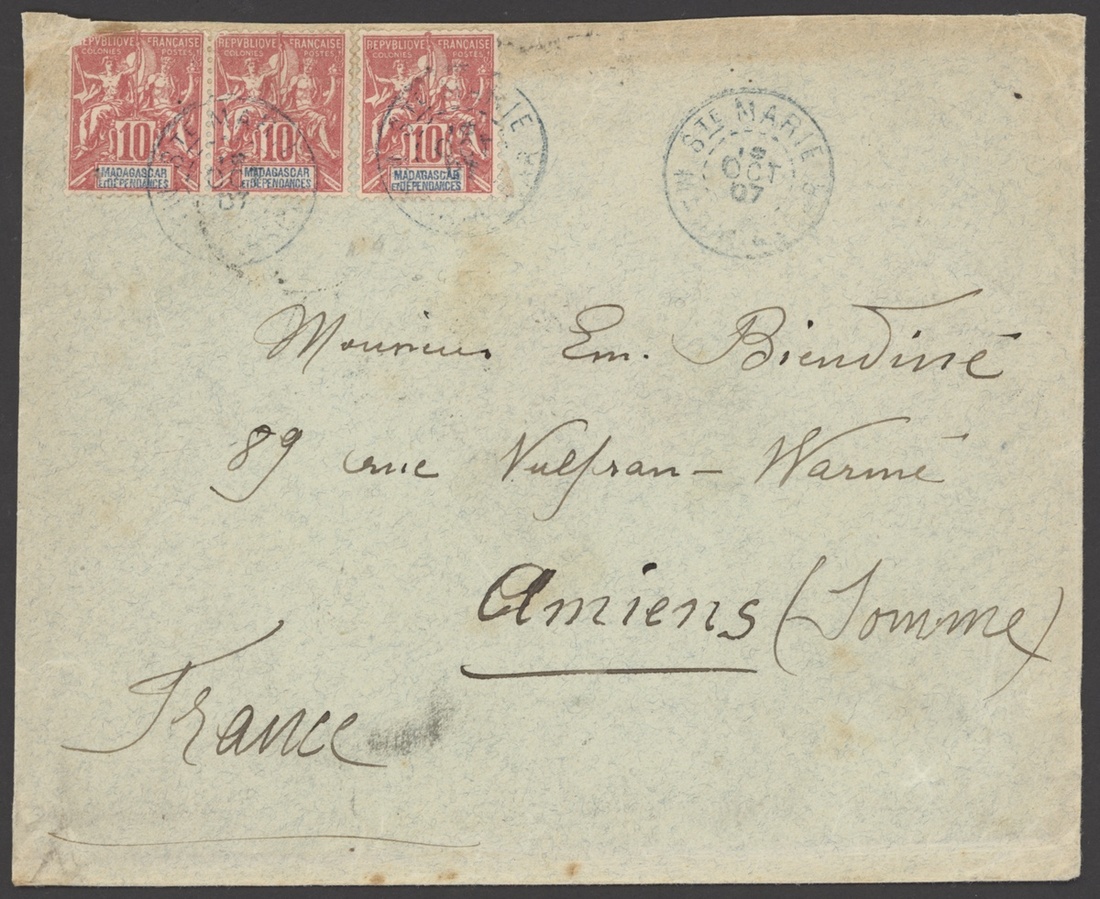 REPVBLIQVE FRANÇAISE
COLONIES POSTES
10
MADAGASCAR
ET DÉPENDANCES
REPVBLIQVE FRANÇAISE
COLONIES POSTES
10
MADAGASCAR
ET DÉPENDANCES
REPVBLIQVE FRANÇAISE
COLONIES POSTES
10
MADAGASCAR
ET DÉPENDANCES
STE MARIE
OCT
07
Monsieur Em.
89 rue Vulfran-Warmé
Amiens (Somme)
France